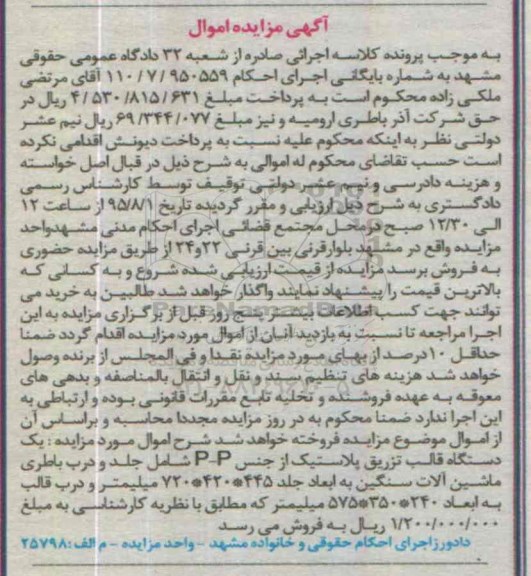 آگهی مزایده اموال
به موجب پرونده کلاسه اجرائی صادره از شعبه ۳۲ دادگاه عمومی حقوقی
مشهد به شماره بایگانی اجرای احکام ۹۵۰۵۵۹ / ۷ / ۱۱۰ آقای مرتضی
ملکی زاده محکوم است به پرداخت مبلغ ۴/۵۳۰/۸۱۵/۶۳۱ ریال در
حق شرکت آذر باطری ارومیه و نیز مبلغ ۶۹/۳۴۴/۰۷۷ ریال نیم عشر
دولتی نظر به اینکه محکوم علیه نسبت به پرداخت دیونش اقدامی نکرده
است حسب تقاضای محکوم له اموالی به شرح ذیل در قبال اصل خواسته
و هزینه دادرسی و نیم عشر دولتی توقیف توسط کارشناس رسمی
دادگستری به شرح ذیل ارزیابی و مقرر گردیده تاریخ ۹۵/۸/۱ از ساعت ۱۲
الی ۱۲/۳۰ صبح در محل مجتمع قضائی اجرای احکام مدنی مشهد واحد
مزایده واقع در مشهد بلوار قرنی بین قرنی ۲۲ و ۲۴ از طریق مزایده حضوری
به فروش برسد مزایده از قیمت ارزیابی شده شروع و به کسانی که
بالاترین قیمت را پیشنهاد نمایند واگذار خواهد شد طالبین به خرید می
توانند جهت کسب اطلاعات بیشتر پنج روز قبل از برگزاری مزایده به این
اجرا مراجعه تا نسبت به بازدید آنان از اموال مورد مزایده اقدام گردد ضمنا
حداقل ۱۰درصد از بهای مورد مزایده نقدا و فی المجلس از برنده وصول
خواهد شد هزینه های تنظیم سند و نقل و انتقال بالمناصفه و بدهی های
معوقه به عهده فروشنده و تخلیه تابع مقررات قانونی بوده و ارتباطی به
این اجرا ندارد ضمنا محکوم به در روز مزایده مجددا محاسبه و براساس آن
از اموال موضوع مزایده فروخته خواهد شد شرح اموال مورد مزایده : یک
دستگاه قالب تزریق پلاستیک از جنس P-P شامل جلد و درب باطری
ماشین آلات سنگین به ابعاد جلد ۴۴۵*۴۲۰*۷۲۰ میلیمتر و درب قالب
به ابعاد ۲۴۰*۳۵۰*۵۷۵ میلیمتر که مطابق با نظریه کارشناسی به مبلغ
۱/۲۰۰/۰۰۰/۰۰۰ ریال به فروش می رسد
دادورز اجرای احکام حقوقی و خانواده مشهد - واحد مزایده - م الف : ۲۵۷۹۸